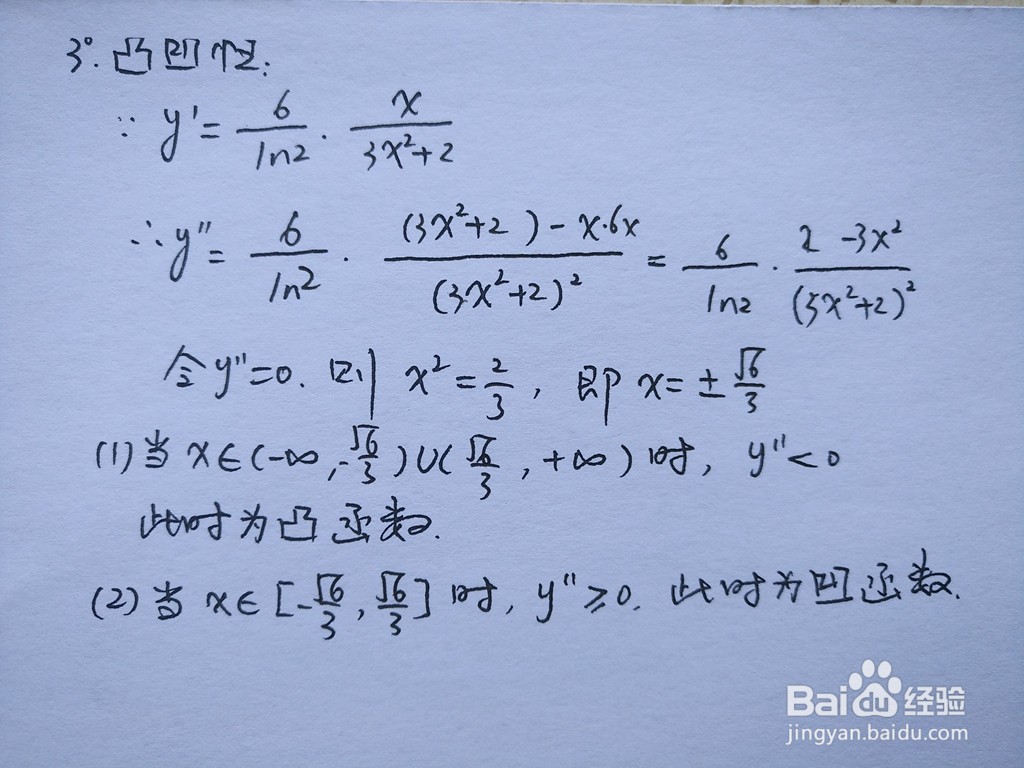 3°. 凸凹性:
∵ y' = 6/ln2 · x/(3x²+2)
∴ y'' = 6/ln2 · ((3x²+2) - x·6x)/(3x²+2)² = 6/ln2 · (2 -3x²)/(5x²+2)²
令y''=0. 则 x² = 2/3, 即 x = ± √6/3
(1)当 x∈(-∞, -√6/3)∪(√6/3, +∞)时, y''<0
此时为凸函数.
(2)当 x∈[-√6/3, √6/3]时, y''≥0. 此时为凹函数.
Baidu经验
jingyan.baidu.com